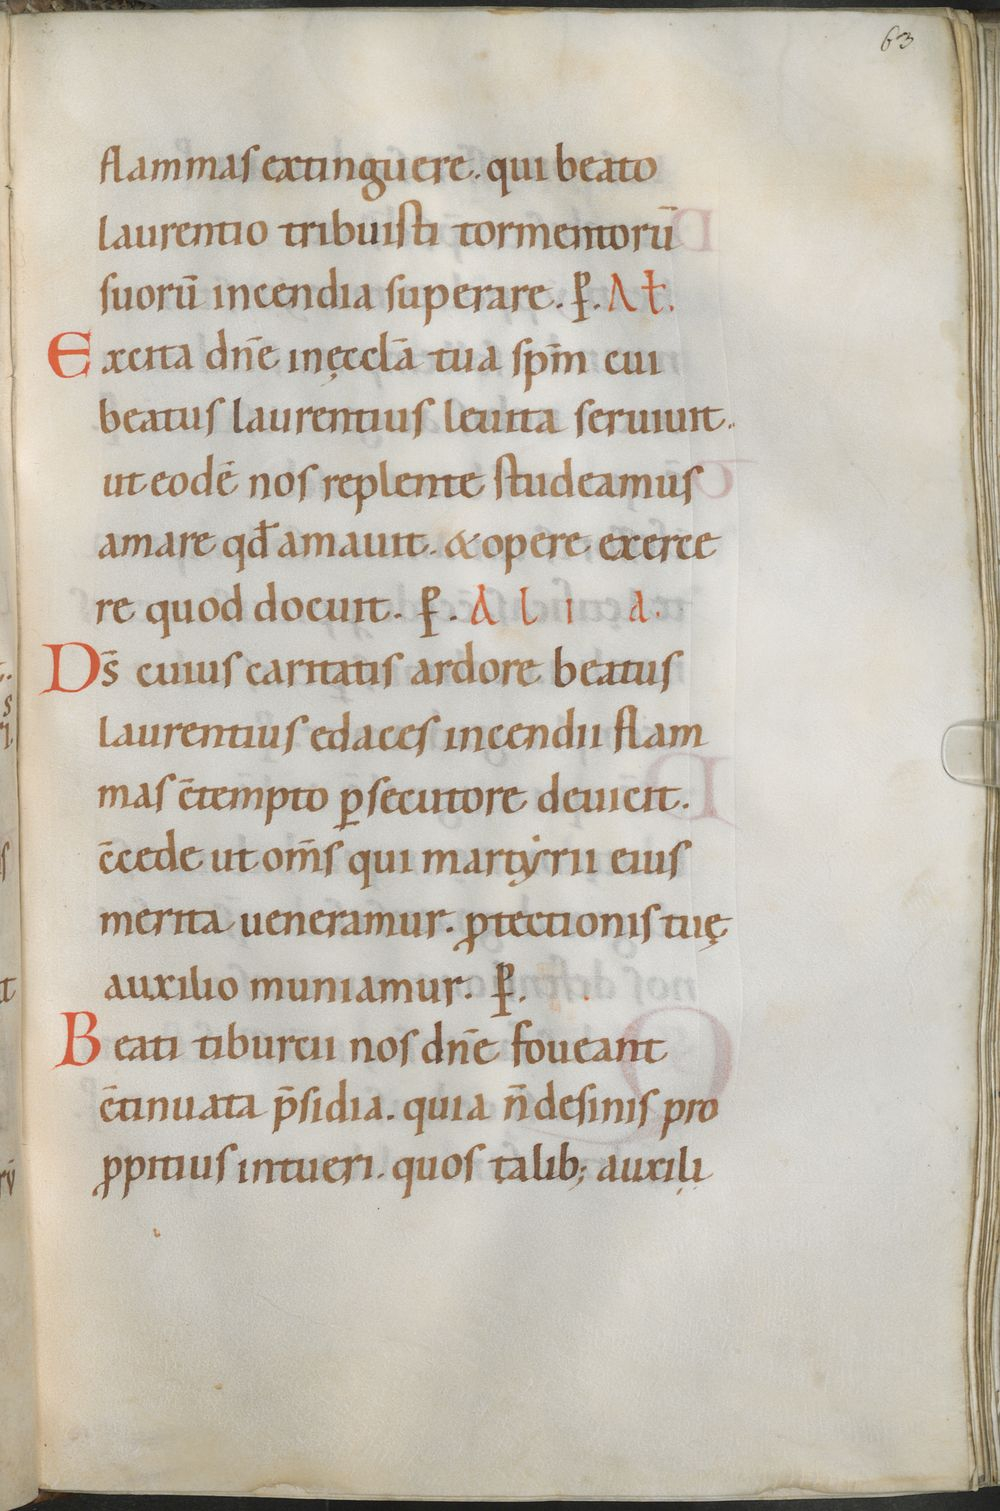 63
flammas extinguere. qui beato
laurentio tribuisti tormentorū
suorū incendia superare. P̲. Alt.
Excita dn̄e inęcclā tua sp̄m cui
beatus laurentius leuita seruiuit.
ut eodē nos replente studeamus
amare qđ amauit. & opere exerce
re quod docuit. P̲. Alia.
Ds̄ cuius caritatis ardore beatus
laurentius edaces incendii flam
mas c̄tempto ꝑsecutore deuicit.
c̄cede ut om̄s qui martẏrii eius
merita ueneramur. ꝓtectionis tuę
auxilio muniamur. P̲.
Beati tiburcii nos dn̄e foueant
c̄tinuata p̄sidia. quia n̄ desinis pro
ꝓpitius intueri. quos talib; auxili